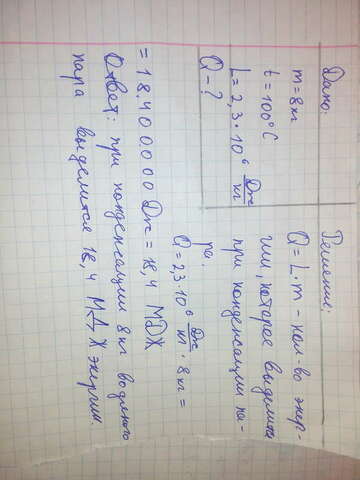 Дано:
m = 8 кг
t = 100° C
L = 2,3 · 10⁶ Дж/кг
Q - ?
Решение:
Q = L · m - кол-во энер-
гии, которое выделится
при конденсации па-
ра.
Q = 2,3 · 10⁶ Дж/кг · 8 кг =
= 18.400000 Дж = 18,4 МДж
Ответ: при конденсации 8 кг водяного
пара выделится 18,4 МДж энергии.